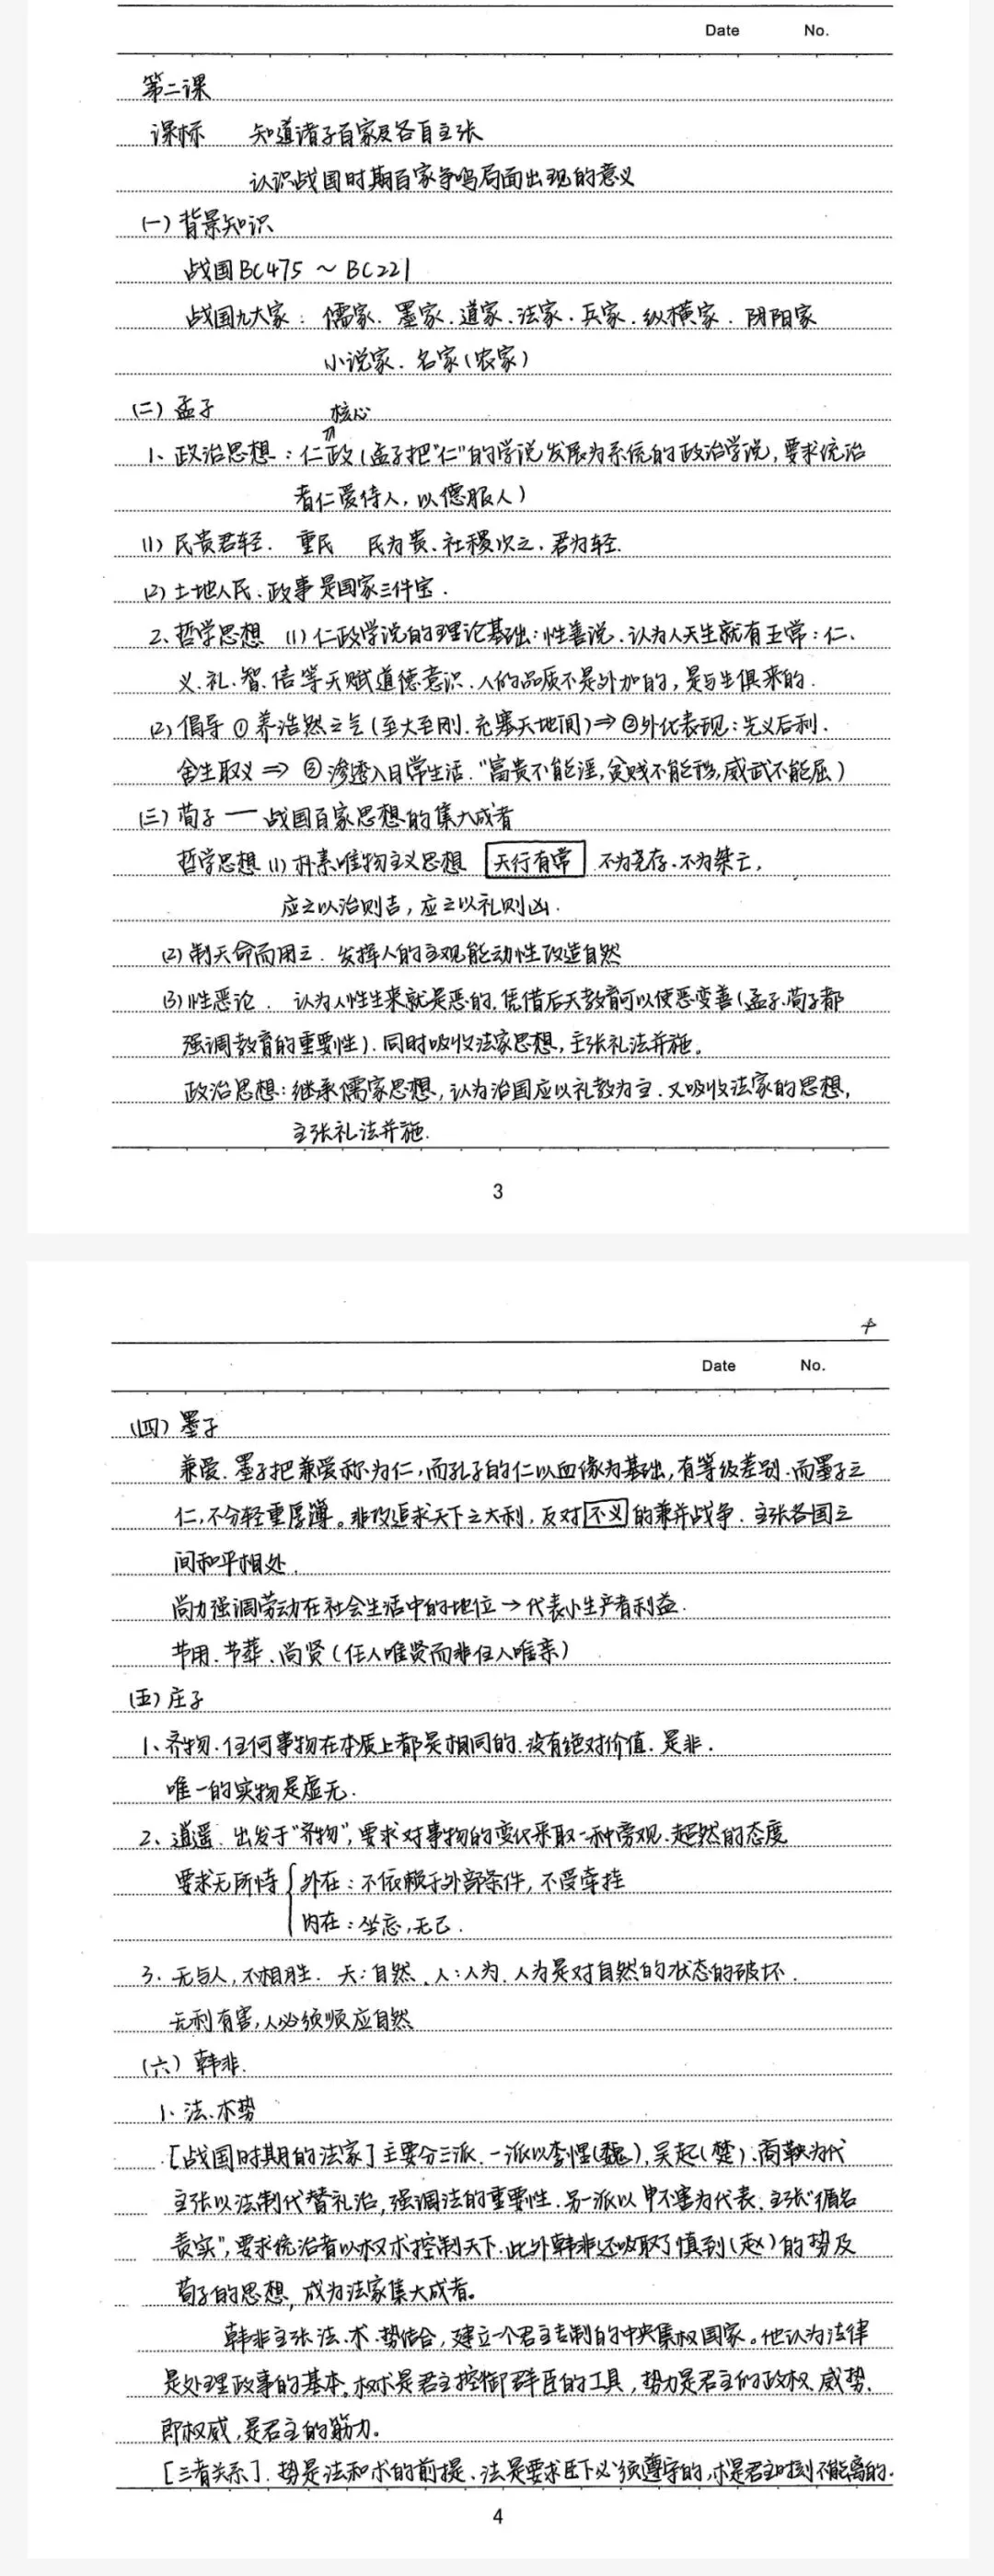 Date No.
第二课
课标 知道诸子百家及各自主张
认识战国时期百家争鸣局面出现的意义
(一)背景知识
战国BC475~BC221
战国九大家:儒家.墨家.道家.法家.兵家.纵横家.阴阳家
小说家.名家(农家)
(二)孟子
核心
1、政治思想:仁政(孟子把"仁"的学说发展为系统的政治学说,要求统治
者仁爱待人,以德服人)
(1)民贵君轻. 重民 民为贵.社稷次之.君为轻.
(2)土地人民、政事是国家三件宝.
2、哲学思想 (1)仁政学说的理论基础:性善说.认为人天生就有五常:仁、
义.礼.智.信等天赋道德意识.人的品质不是外加的,是与生俱来的.
(2)倡导①养浩然之气(至大至刚.充塞天地间)⇒②外化表现:先义后利.
舍生取义⇒③渗透入日常生活."富贵不能淫,贫贱不能移,威武不能屈)
(三)荀子—战国百家思想的集大成者
哲学思想(1)朴素唯物主义思想 天行有常 不为尧存.不为桀亡,
应之以治则吉,应之以礼则凶.
(2)制天命而用三.发挥人的主观能动性改造自然
(3)性恶论. 认为人性生来就是恶的.凭借后天教育可以使恶变善(孟子.荀子都
强调教育的重要性).同时吸收法家思想,主张礼法并施。
政治思想:继承儒家思想,认为治国应以礼教为主.又吸收法家的思想,
主张礼法并施.
3
Date No.
(四)墨子
兼爱.墨子把兼爱称为仁,而孔子的仁以血缘为基础,有等级差别.而墨子之
仁,不分轻重厚薄。非攻追求天下之大利,反对不义的兼并战争.主张各国之
间和平相处.
尚力强调劳动在社会生活中的地位→代表小生产者利益.
节用.节葬.尚贤(任人唯贤而非任人唯亲)
(五)庄子
1、齐物.任何事物在本质上都是相同的.没有绝对价值.是非.
唯一的实物是虚无.
2、逍遥.出发于"齐物",要求对事物的变化采取一种旁观.超然的态度
要求无所恃 外在:不依赖于外部条件,不受牵挂
内在:坐忘,无己.
3.天与人,不相胜.天:自然.人:人为.人为是对自然的状态的破坏.
无利有害,人必须顺应自然
(六)韩非.
1、法.术势
[战国时期的法家]主要分三派.一派以李悝(魏),吴起(楚).商鞅为代
主张以法制代替礼治,强调法的重要性.另一派以申不害为代表.主张"循名
责实",要求统治者以权术控制天下.此外韩非还吸取了慎到(赵)的势及
荀子的思想,成为法家集大成者。
韩非主张法.术.势结合,建立一个君主专制的中央集权国家。他认为法律
是处理政事的基本。权术是君主控御群臣的工具,势力是君主的政权、威势.
即权威,是君主的筋力。
[三者关系].势是法和术的前提、法是要求臣下必须遵守的,术是君主时刻不能离的.
4